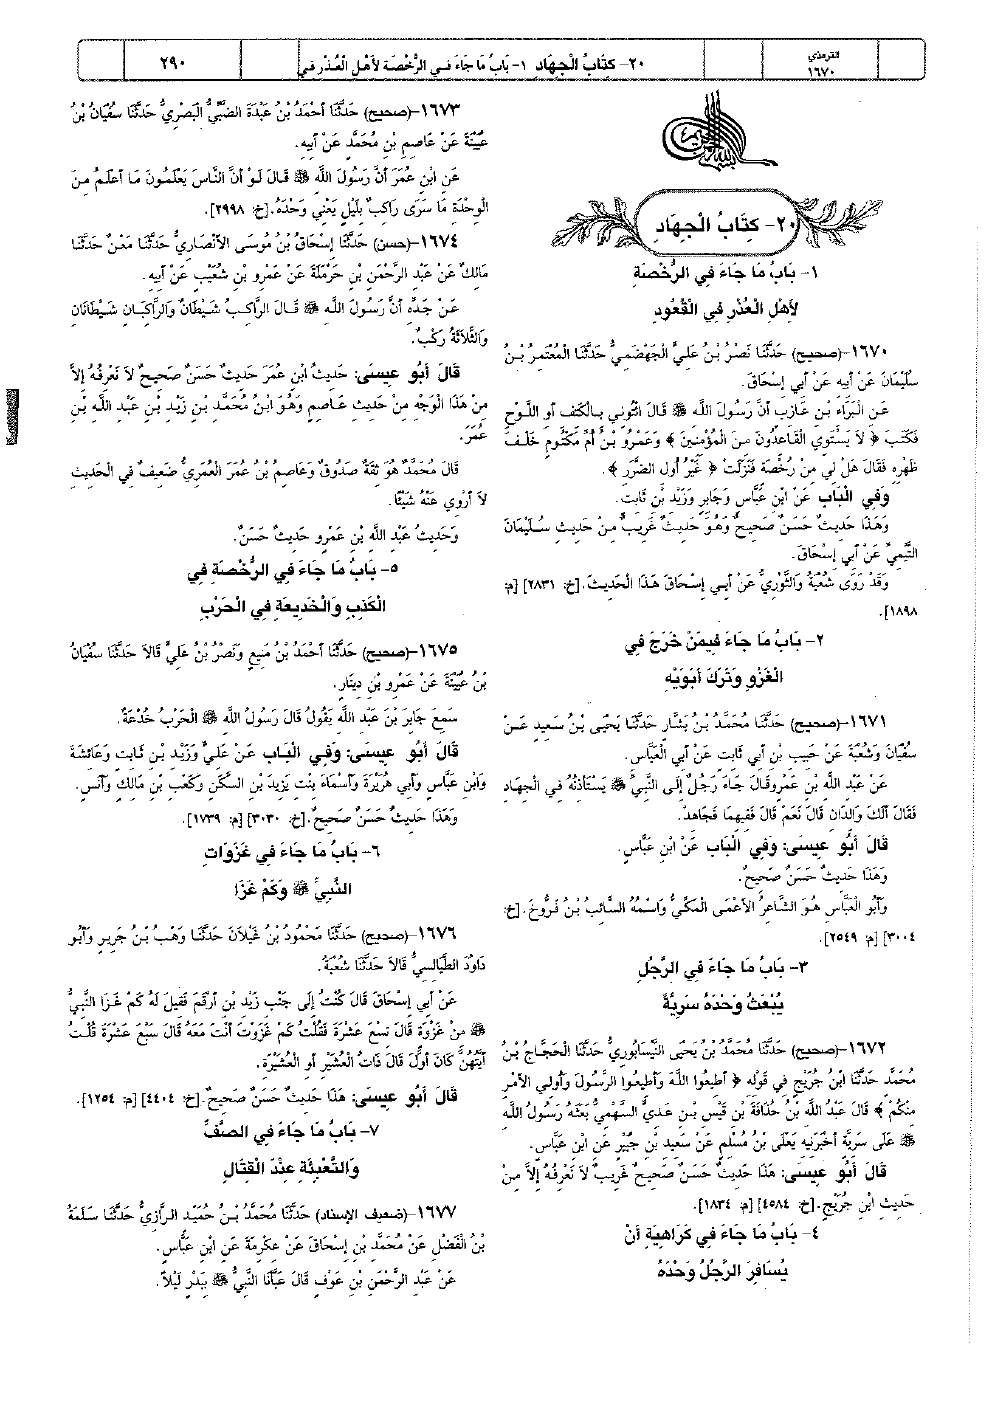 الترمذي
١٦٧٠
٢٠- كتَابُ الْجِهَادِ ١- بَابُ مَا جَاءَ فِي الرُّخْصَةِ لأَهْلِ الْعُذْرِ في
٢٩٠
٢٠- كِتَابُ الْجِهَادِ
١- بَابُ مَا جَاءَ فِي الرُّخْصَةِ
لأَهْلِ الْعُذْرِ فِي الْقُعُودِ
١٦٧٠-(صحيح) حَدَّثَنَا نَصْرُ بْنُ عَلِيٍّ الْجَهْضَمِيُّ حَدَّثَنَا الْمُعْتَمِرُ بْنُ
سُلَيْمَانَ عَنْ أَبِيهِ عَنْ أَبِي إِسْحَاقَ.
عَنِ الْبَرَاءِ بْنِ عَازِبٍ أَنَّ رَسُولَ اللَّهِ ﷺ قَالَ ائْتُونِي بِالْكَتِفِ أَوِ اللَّوْحِ
فَكَتَبَ ﴿ لاَ يَسْتَوِي الْقَاعِدُونَ مِنَ الْمُؤْمِنِينَ ﴾ وَعَمْرُو بْنُ أُمِّ مَكْتُومٍ خَلْفَ
ظَهْرِهِ فَقَالَ هَلْ لِي مِنْ رُخْصَةٍ فَنَزَلَتْ ﴿ غَيْرُ أُولِ الضَّرَرِ ﴾.
وَفِي الْبَاب عَنِ ابْنِ عَبَّاسٍ وَجَابِرٍ وَزَيْدِ بْنِ ثَابِتٍ.
وَهَذَا حَدِيثٌ حَسَنٌ صَحِيحٌ وَهُوَ حَدِيثٌ غَرِيبٌ مِنْ حَدِيثِ سُلَيْمَانَ
التَّيْمِيِّ عَنْ أَبِي إِسْحَاقَ.
وَقَدْ رَوَى شُعْبَةُ وَالثَّوْرِيُّ عَنْ أَبِي إِسْحَاقَ هَذَا الْحَدِيثَ.[خ: ٢٨٣١] [م:
١٨٩٨].
٢- بَابُ مَا جَاءَ فِيمَنْ خَرَجَ فِي
الْغَزْوِ وَتَرَكَ أَبَوَيْهِ
١٦٧١-(صحيح) حَدَّثَنَا مُحَمَّدُ بْنُ بَشَّارٍ حَدَّثَنَا يَحْيَى بْنُ سَعِيدٍ عَنْ
سُفْيَانَ وَشُعْبَةَ عَنْ حَبِيبِ بْنِ أَبِي ثَابِتٍ عَنْ أَبِي الْعَبَّاسِ.
عَنْ عَبْدِ اللَّهِ بْنِ عَمْرٍو قَالَ جَاءَ رَجُلٌ إِلَى النَّبِيِّ ﷺ يَسْتَأْذِنُهُ فِي الْجِهَادِ
فَقَالَ أَلَكَ وَالِدَانِ قَالَ نَعَمْ قَالَ فَفِيهِمَا فَجَاهِدْ.
قَالَ أَبُو عِيسَى: وَفِي الْبَاب عَنِ ابْنِ عَبَّاسٍ.
وَهَذَا حَدِيثٌ حَسَنٌ صَحِيحٌ.
وَأَبُو الْعَبَّاسِ هُوَ الشَّاعِرُ الأَعْمَى الْمَكِّيُّ وَاسْمُهُ السَّائِبُ بْنُ فَرُّوخَ.[خ:
٣٠٠٤] [م: ٢٥٤٩].
٣- بَابُ مَا جَاءَ فِي الرَّجُلِ
يُبْعَثُ وَحْدَهُ سَرِيَّةً
١٦٧٢-(صحيح) حَدَّثَنَا مُحَمَّدُ بْنُ يَحْيَى النَّيْسَابُورِيُّ حَدَّثَنَا الْحَجَّاجُ بْنُ
مُحَمَّدٍ حَدَّثَنَا ابْنُ جُرَيْجٍ فِي قَوْلِهِ ﴿ أَطِيعُوا اللَّهَ وَأَطِيعُوا الرَّسُولَ وَأُولِي الأَمْرِ
مِنْكُمْ ﴾ قَالَ عَبْدُ اللَّهِ بْنُ حُذَافَةَ بْنِ قَيْسِ بْنِ عَدِيٍّ السَّهْمِيُّ بَعَثَهُ رَسُولُ اللَّهِ
ﷺ عَلَى سَرِيَّةٍ أَخْبَرَنِيهِ يَعْلَى بْنُ مُسْلِمٍ عَنْ سَعِيدِ بْنِ جُبَيْرٍ عَنِ ابْنِ عَبَّاسٍ.
قَالَ أَبُو عِيسَى: هَذَا حَدِيثٌ حَسَنٌ صَحِيحٌ غَرِيبٌ لاَ نَعْرِفُهُ إِلاَّ مِنْ
حَدِيثِ ابْنِ جُرَيْجٍ.[خ: ٤٥٨٤] [م: ١٨٣٤].
٤- بَابُ مَا جَاءَ فِي كَرَاهِيَةِ أَنْ
يُسَافِرَ الرَّجُلُ وَحْدَهُ
١٦٧٣-(صحيح) حَدَّثَنَا أَحْمَدُ بْنُ عَبْدَةَ الضَّبِّيُّ الْبَصْرِيُّ حَدَّثَنَا سُفْيَانُ بْنُ
عُيَيْنَةَ عَنْ عَاصِمِ بْنِ مُحَمَّدٍ عَنْ أَبِيهِ.
عَنِ ابْنِ عُمَرَ أَنَّ رَسُولَ اللَّهِ ﷺ قَالَ لَوْ أَنَّ النَّاسَ يَعْلَمُونَ مَا أَعْلَمُ مِنَ
الْوِحْدَةِ مَا سَرَى رَاكِبٌ بِلَيْلٍ يَعْنِي وَحْدَهُ.[خ: ٢٩٩٨].
١٦٧٤-(حسن) حَدَّثَنَا إِسْحَاقُ بْنُ مُوسَى الأَنْصَارِيُّ حَدَّثَنَا مَعْنٌ حَدَّثَنَا
مَالِكٌ عَنْ عَبْدِ الرَّحْمَنِ بْنِ حَرْمَلَةَ عَنْ عَمْرِو بْنِ شُعَيْبٍ عَنْ أَبِيهِ.
عَنْ جَدِّهِ أَنَّ رَسُولَ اللَّهِ ﷺ قَالَ الرَّاكِبُ شَيْطَانٌ وَالرَّاكِبَانِ شَيْطَانَانِ
وَالثَّلاَثَةُ رَكْبٌ.
قَالَ أَبُو عِيسَى: حَدِيثُ ابْنِ عُمَرَ حَدِيثٌ حَسَنٌ صَحِيحٌ لاَ نَعْرِفُهُ إِلاَّ
مِنْ هَذَا الْوَجْهِ مِنْ حَدِيثِ عَاصِمٍ وَهُوَ ابْنُ مُحَمَّدِ بْنِ زَيْدِ بْنِ عَبْدِ اللَّهِ بْنِ
عُمَرَ.
قَالَ مُحَمَّدٌ هُوَ ثِقَةٌ صَدُوقٌ وَعَاصِمُ بْنُ عُمَرَ الْعُمَرِيُّ ضَعِيفٌ فِي الْحَدِيثِ
لاَ أَرْوِي عَنْهُ شَيْئًا.
وَحَدِيثُ عَبْدِ اللَّهِ بْنِ عَمْرٍو حَدِيثٌ حَسَنٌ.
٥- بَابُ مَا جَاءَ فِي الرُّخْصَةِ فِي
الْكَذِبِ وَالْخَدِيعَةِ فِي الْحَرْبِ
١٦٧٥-(صحيح) حَدَّثَنَا أَحْمَدُ بْنُ مَنِيعٍ وَنَصْرُ بْنُ عَلِيٍّ قَالاَ حَدَّثَنَا سُفْيَانُ
بْنُ عُيَيْنَةَ عَنْ عَمْرِو بْنِ دِينَارٍ.
سَمِعَ جَابِرَ بْنَ عَبْدِ اللَّهِ يَقُولُ قَالَ رَسُولُ اللَّهِ ﷺ الْحَرْبُ خُدْعَةٌ.
قَالَ أَبُو عِيسَى: وَفِي الْبَاب عَنْ عَلِيٍّ وَزَيْدِ بْنِ ثَابِتٍ وَعَائِشَةَ
وَابْنِ عَبَّاسٍ وَأَبِي هُرَيْرَةَ وَأَسْمَاءَ بِنْتِ يَزِيدَ بْنِ السَّكَنِ وَكَعْبِ بْنِ مَالِكٍ وَأَنَسٍ.
وَهَذَا حَدِيثٌ حَسَنٌ صَحِيحٌ.[خ: ٣٠٣٠] [م: ١٧٣٩].
٦- بَابُ مَا جَاءَ فِي غَزَوَاتِ
النَّبِيِّ ﷺ وَكَمْ غَزَا
١٦٧٦-(صحيح) حَدَّثَنَا مَحْمُودُ بْنُ غَيْلاَنَ حَدَّثَنَا وَهْبُ بْنُ جَرِيرٍ وَأَبُو
دَاوُدَ الطَّيَالِسِيُّ قَالاَ حَدَّثَنَا شُعْبَةُ.
عَنْ أَبِي إِسْحَاقَ قَالَ كُنْتُ إِلَى جَنْبِ زَيْدِ بْنِ أَرْقَمَ فَقِيلَ لَهُ كَمْ غَزَا النَّبِيُّ
ﷺ مِنْ غَزْوَةٍ قَالَ تِسْعَ عَشْرَةَ فَقُلْتُ كَمْ غَزَوْتَ أَنْتَ مَعَهُ قَالَ سَبْعَ عَشْرَةَ قُلْتُ
أَيَّتُهُنَّ كَانَ أَوَّلَ قَالَ ذَاتُ الْعُشَيْرِ أَوِ الْعُشَيْرَةِ.
قَالَ أَبُو عِيسَى: هَذَا حَدِيثٌ حَسَنٌ صَحِيحٌ.[خ: ٤٤٠٤] [م: ١٢٥٤].
٧- بَابُ مَا جَاءَ فِي الصَّفِّ
وَالتَّعْبِئَةِ عِنْدَ الْقِتَالِ
١٦٧٧-(ضعيف الإسناد) حَدَّثَنَا مُحَمَّدُ بْنُ حُمَيْدٍ الرَّازِيُّ حَدَّثَنَا سَلَمَةُ
بْنُ الْفَضْلِ عَنْ مُحَمَّدِ بْنِ إِسْحَاقَ عَنْ عِكْرِمَةَ عَنِ ابْنِ عَبَّاسٍ.
عَنْ عَبْدِ الرَّحْمَنِ بْنِ عَوْفٍ قَالَ عَبَّأَنَا النَّبِيُّ ﷺ بِبَدْرٍ لَيْلاً.